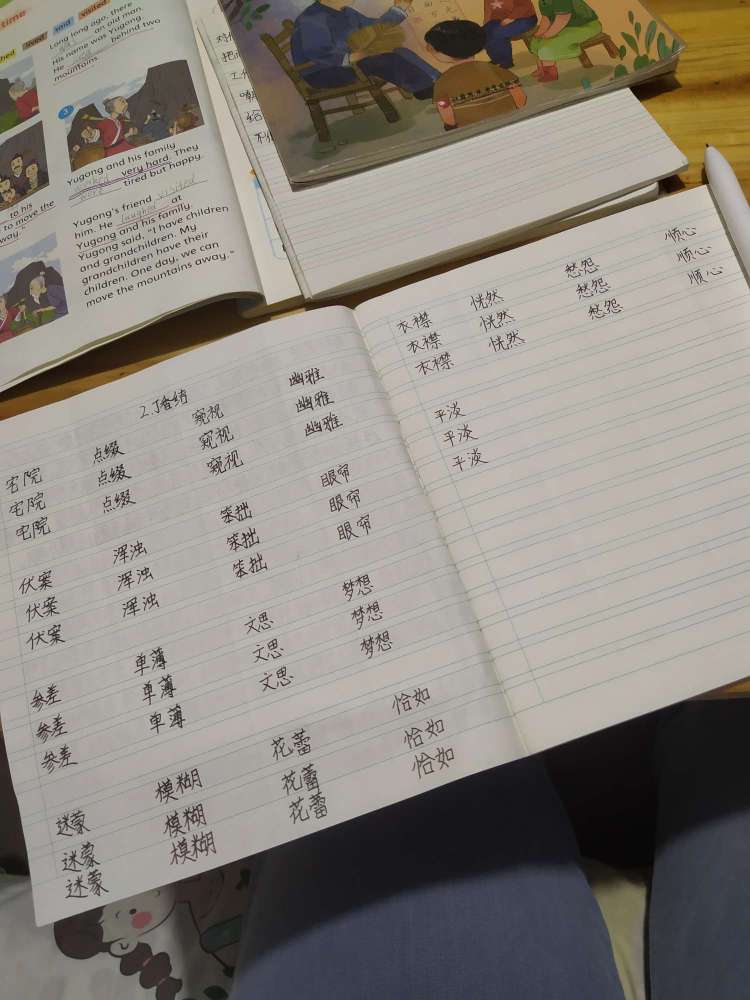 time
lived
said
visited
Long long ago, there
an old man.
His name was Yugong.
He behind two
mountains
3
Yugong and his family
worked very hard. They
were tired but happy.
to his
to move the
way."
Yugong's friend visited
him. He laughed at
Yugong and his family.
Yugong said, "I have children
and grandchildren. My
grandchildren have their
children. One day, we can
move the mountains away."
2.丁香结
宅院 点缀 窥视 幽雅
宅院 点缀 窥视 幽雅
宅院 点缀 窥视 幽雅
伏案 浑浊 笨拙 眼帘
伏案 浑浊 笨拙 眼帘
伏案 浑浊 笨拙 眼帘
参差 单薄 文思 梦想
参差 单薄 文思 梦想
参差 单薄 文思 梦想
迷蒙 模糊 花蕾 恰如
迷蒙 模糊 花蕾 恰如
迷蒙 模糊 花蕾 恰如
衣襟 恍然 愁怨 顺心
衣襟 恍然 愁怨 顺心
衣襟 恍然 愁怨 顺心
平淡
平淡
平淡